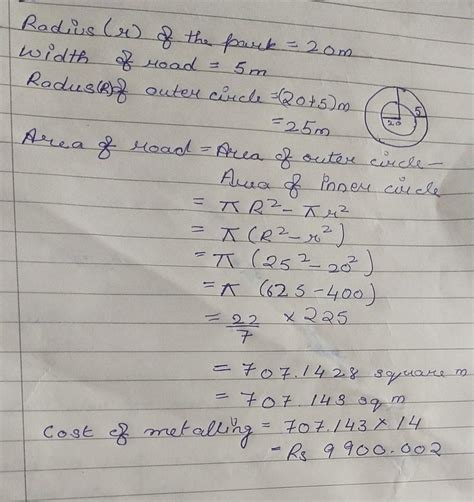 Radius (r) of the park = 20m
Width of road = 5m
Radus(R)of outer circle =(20+5)m
= 25m
5
20
Area of road = Area of outer circle –
Area of inner circle
= π R² – π r²
= π (R² – r²)
= π (25² – 20²)
= π (625 – 400)
= 22/7 × 225
= 707.1428 square m
= 707.143 sq m
Cost of metalling = 707.143 × 14
= Rs 9900.002